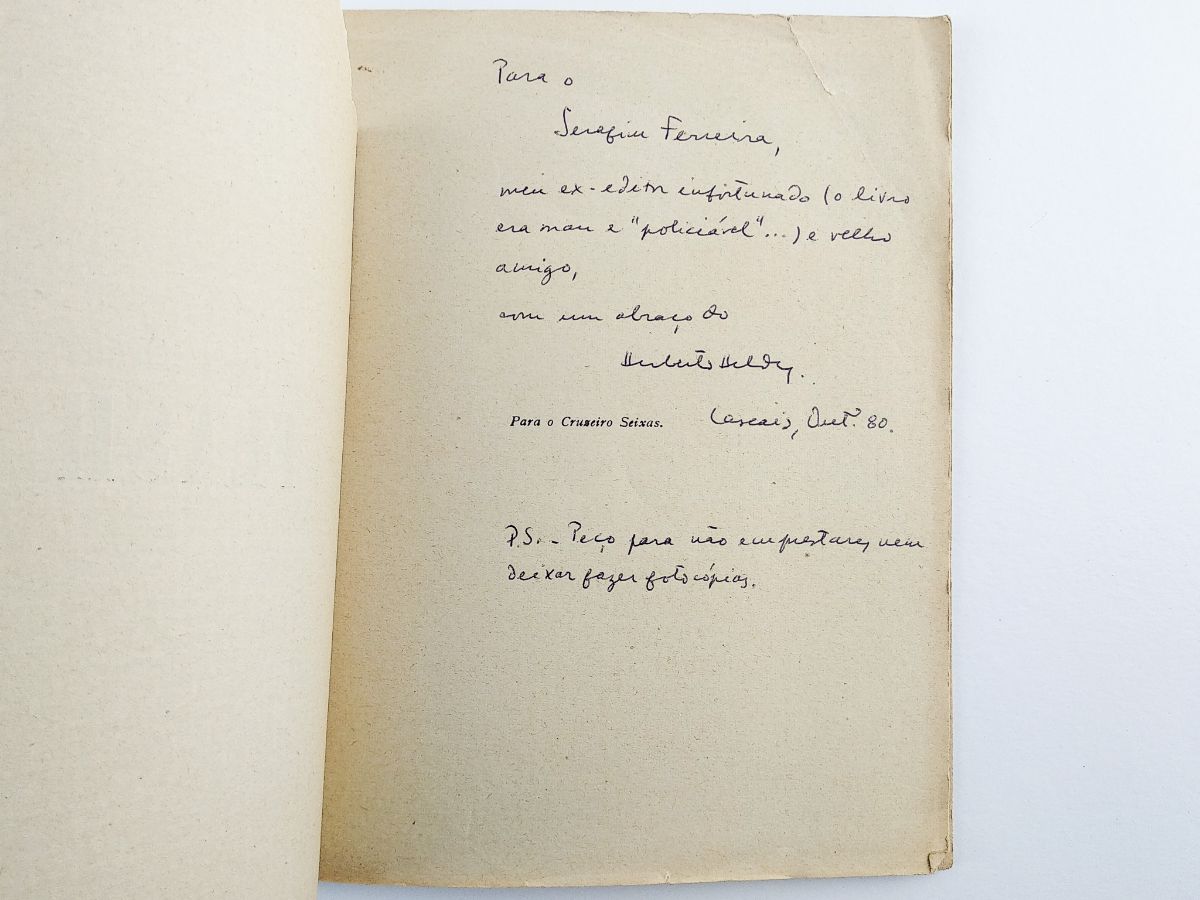 Para o
Serafim Ferreira,
meu ex-editor infortunado (o livro
era mau e "policiável"...) e velho
amigo,
com um abraço do
Herberto Helder.
Cascais, Out. 80.
Para o Cruzeiro Seixas.
P.S. - Peço para não emprestares nem
deixar fazer fotocópias.